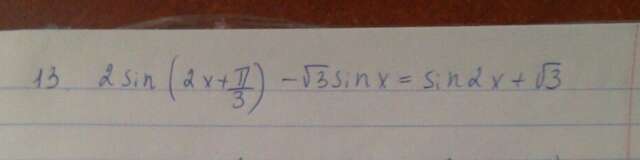 13. 2 sin (2x + π/3) - √3 sin x = sin 2x + √3